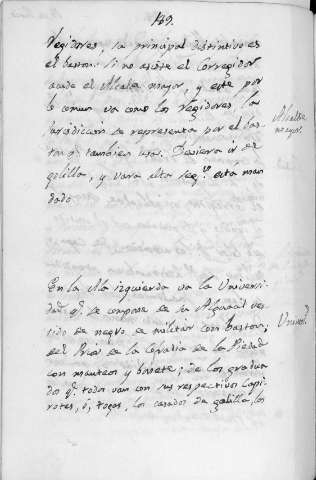 139.
Regidores, su principal distintivo es
el baston. Si no asiste el Corregidor
acude el Alcalde mayor, y este por
lo comun va como los Regidores, la
jurisdiccion se representa por el bas-
ton q. tambien usa. Debiera ir de
golilla, y vara alta seg.n está man
dado.
Alcalde
mayor.
En la Ala izquierda va la Universi-
dad q.e se compone de su Alguacil ves-
tido de negro, de militar con baston;
del Prior de la Cofradia de la Piedad
con manteos y bonete; de los gradua
dos q.e todos van con sus respectivos Capi-
rotes, ó, togas, los casados de golilla, los
Univers.d